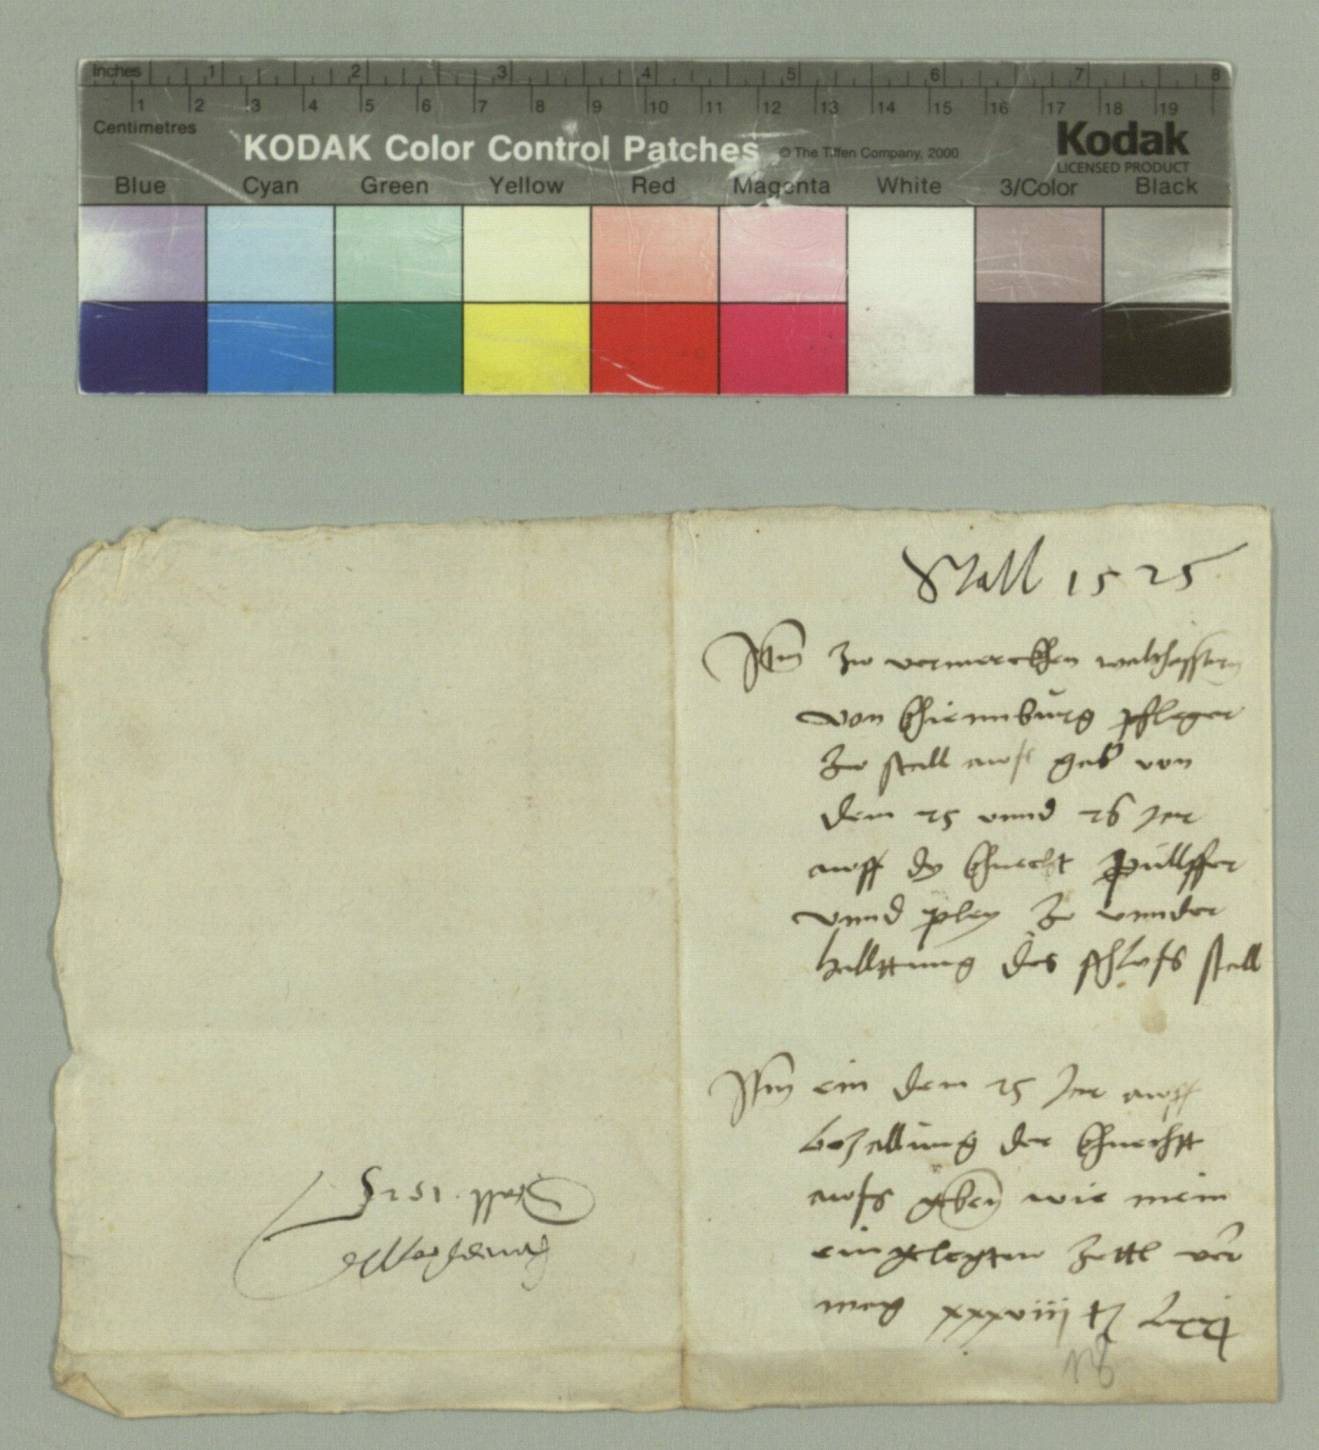 Inches 1 2 3 4 5 6 7 8
1 2 3 4 5 6 7 8 9 10 11 12 13 14 15 16 17 18 19
Centimetres
KODAK Color Control Patches © The Tiffen Company, 2000 Kodak
LICENSED PRODUCT
Blue Cyan Green Yellow Red Magenta White 3/Color Black
Stall 1525
Itm zw vermerckhen
von Khiennburg pfleger
zw stall aws geb von
dem 25 vnnd 26 Jar
awff dy Khnecht pullffer
vnnd pley zw vnnder
halltung des schloss stall
Itm ein dem 25 Jar awff
bezallung der Khnecht
awss geben wie mein
eingelegten zettl ver
mag xxxviij
Stall 1525